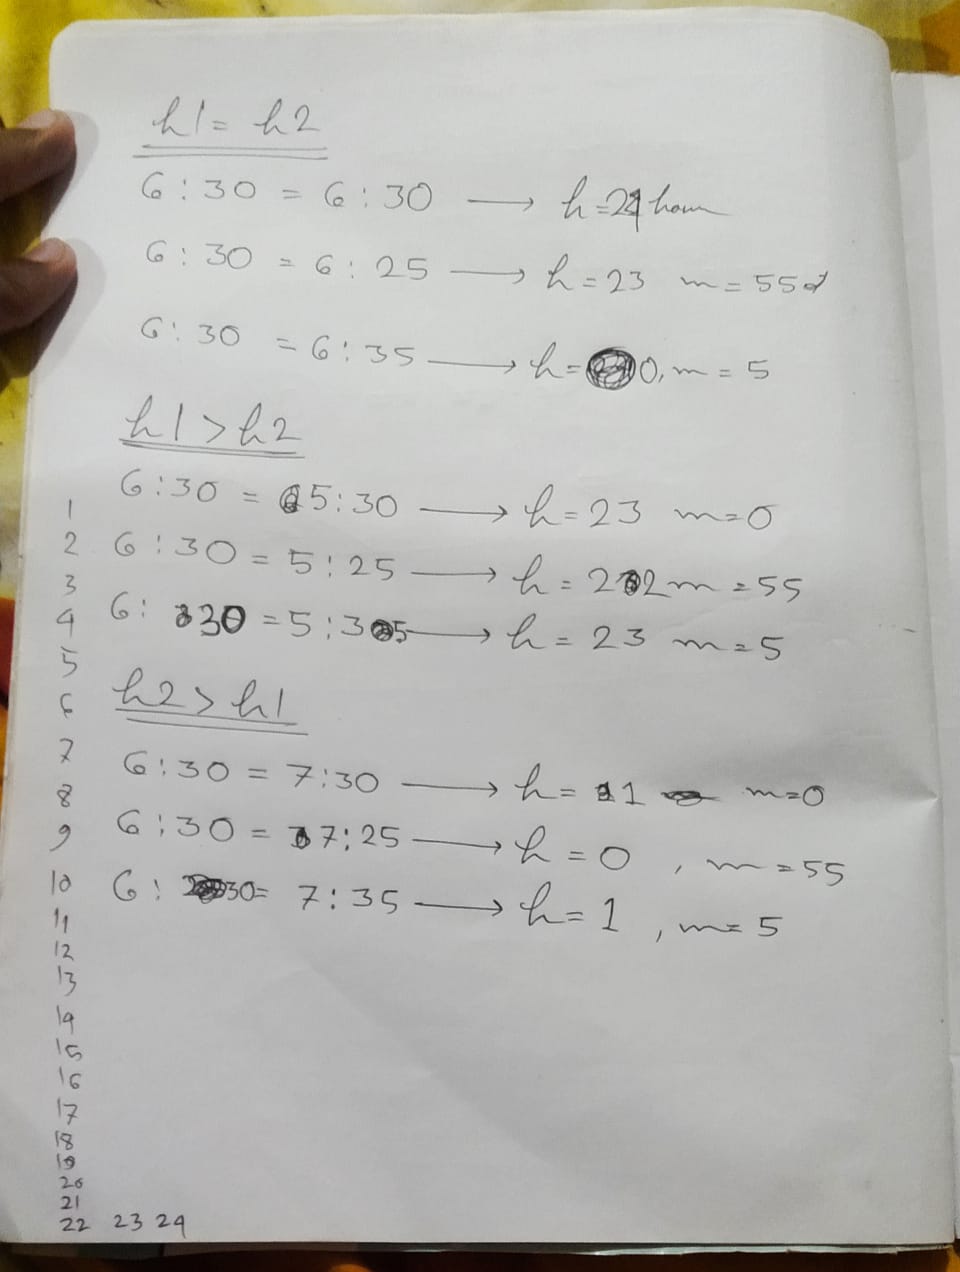 h1 = h2
6:30 = 6:30 → h=24 hour
6:30 = 6:25 → h=23 m=55
6:30 = 6:35 → h=0, m=5
h1>h2
6:30 = 5:30 → h=23 m=0
6:30 = 5:25 → h=22 m=55
6:30 = 5:35 → h=23 m=5
h2>h1
6:30 = 7:30 → h=1 m=0
6:30 = 7:25 → h=0, m=55
6:30 = 7:35 → h=1, m=5
1
2
3
4
5
6
7
8
9
10
11
12
13
14
15
16
17
18
19
20
21
22 23 24